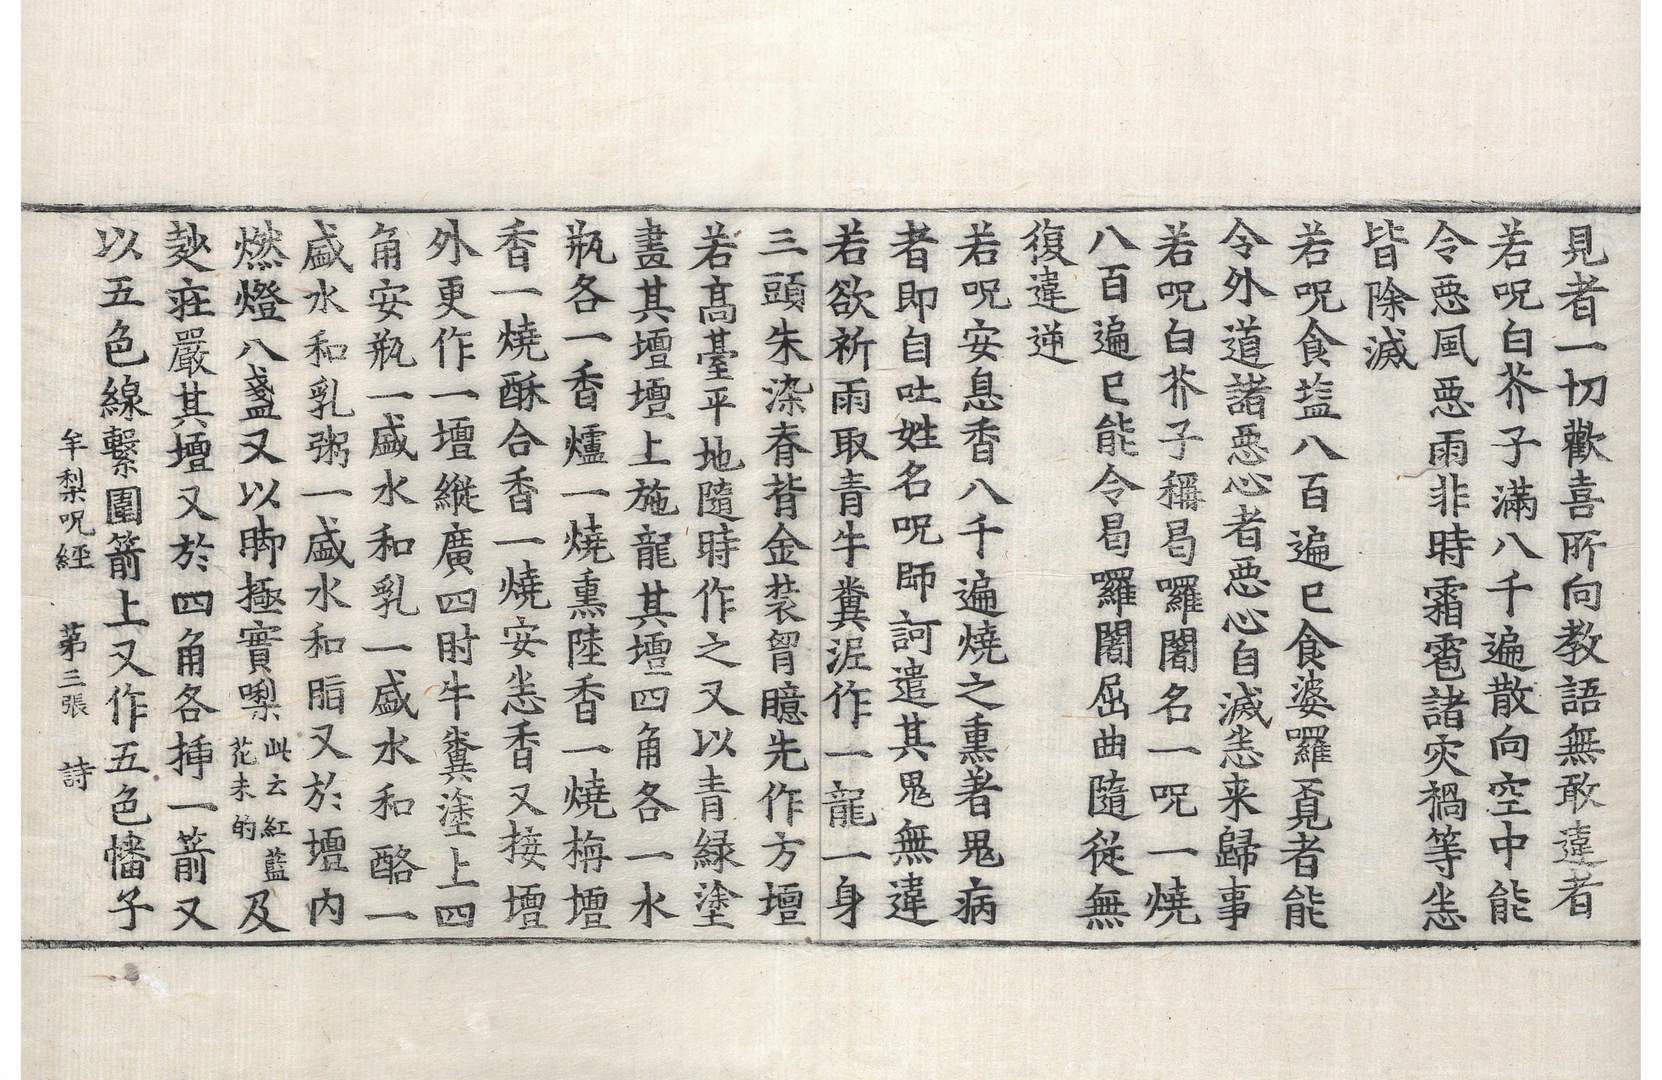 見者一切歡喜所向教語無敢違者
若呪白芥子滿八千遍散向空中能
令惡風惡雨非時霜雹諸灾禍等悉
皆除滅
若呪食塩八百遍已食婆囉賈見者能
令外道諸惡心者惡心自滅悉来歸事
若呪白芥子稱曷囉闍名一呪一燒
八百遍已能令曷囉闍屈曲隨從無
復違逆
若呪安息香八千遍燒之熏著鬼病
者即自吐姓名呪師訶遣其鬼無違
若欲祈雨取青牛糞泥作一龍一身
三頭朱染脊背金裝胷臆先作方壇
若高臺平地隨時作之又以青緑塗
畫其壇壇上施龍其壇四角各一水
瓶各一香爐一燒熏陸香一燒栴檀
香一燒酥合香一燒安悉香又接壇
外更作一壇縱廣四肘牛糞塗上四
角安瓶一盛水和乳一盛水和酪一
盛水和乳粥一盛水和脂又於壇内
燃燈八盞又以𦙶極實㘑此云紅藍花未的及
麨莊嚴其壇又於四角各揷一箭又
牟梨呪經 第三張 詩
以五色線繫圍箭上又作五色幡子